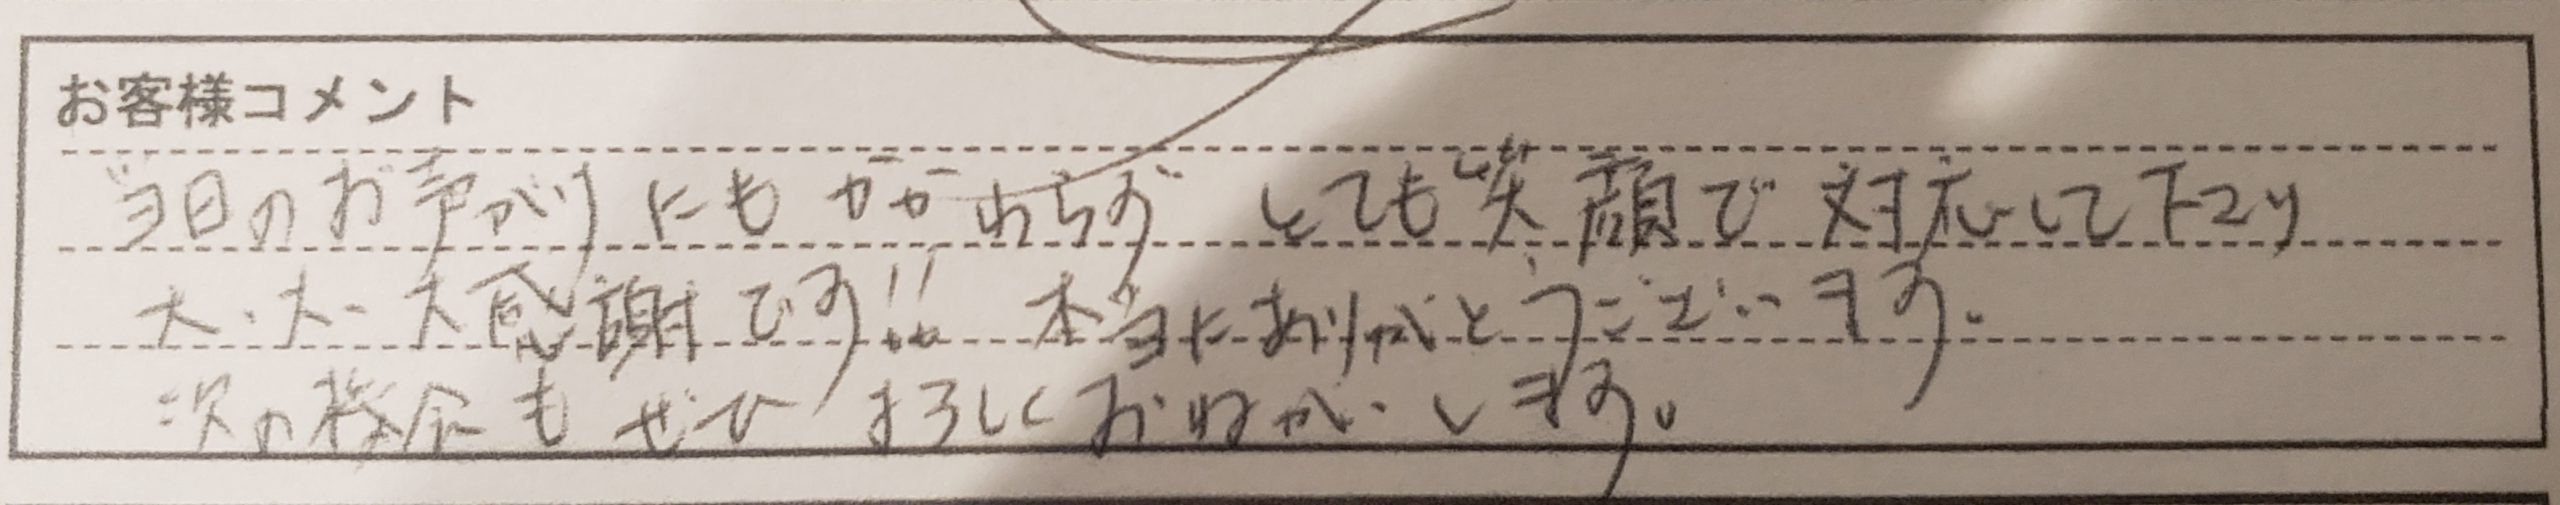 お客様コメント
当日のお声がけにもかかわらず とても笑顔で対応して下さり
大・大・大感謝です!! 本当にありがとうございます。
次の機会もぜひよろしくおねがいします。